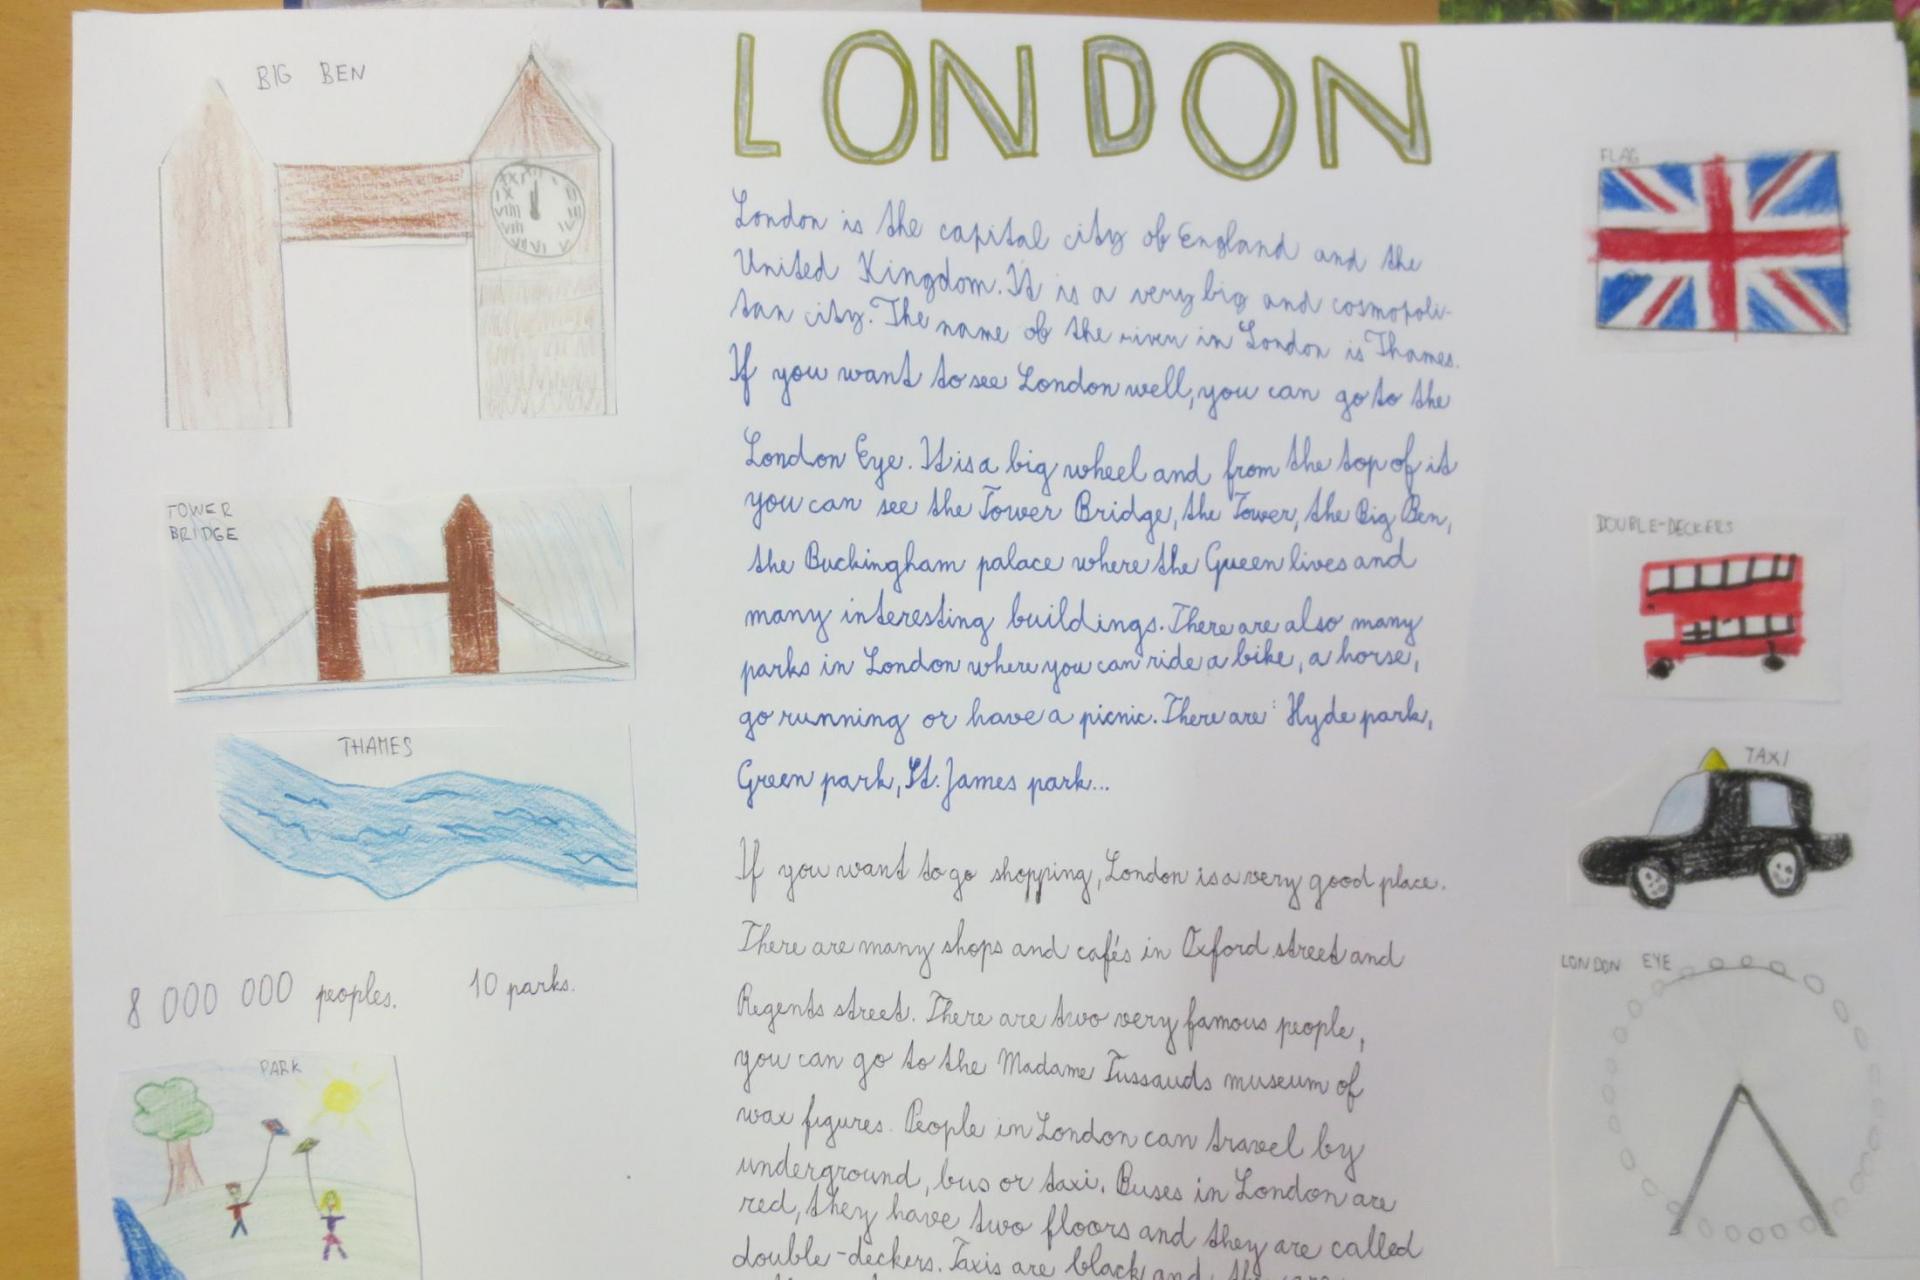 LONDON
London is the capital city of England and the
United Kingdom. It is a very big and cosmopoli-
tan city. The name of the river in London is Thames.
If you want to see London well, you can go to the
London Eye. It is a big wheel and from the top of it
you can see the Tower Bridge, the Tower, the Big Ben,
the Buckingham palace where the Queen lives and
many interesting buildings. There are also many
parks in London where you can ride a bike, a horse,
go running or have a picnic. There are: Hyde park,
Green park, St. James park...
If you want to go shopping, London is a very good place.
There are many shops and cafés in Oxford street and
Regents street. There are two very famous people,
you can go to the Madame Tussauds museum of
wax figures. People in London can travel by
underground, bus or taxi. Buses in London are
red, they have two floors and they are called
double-deckers. Taxis are black and
BIG BEN
TOWER
BRIDGE
THAMES
8 000 000 peoples. 10 parks.
PARK
FLAG
DOUBLE-DECKERS
TAXI
LONDON EYE